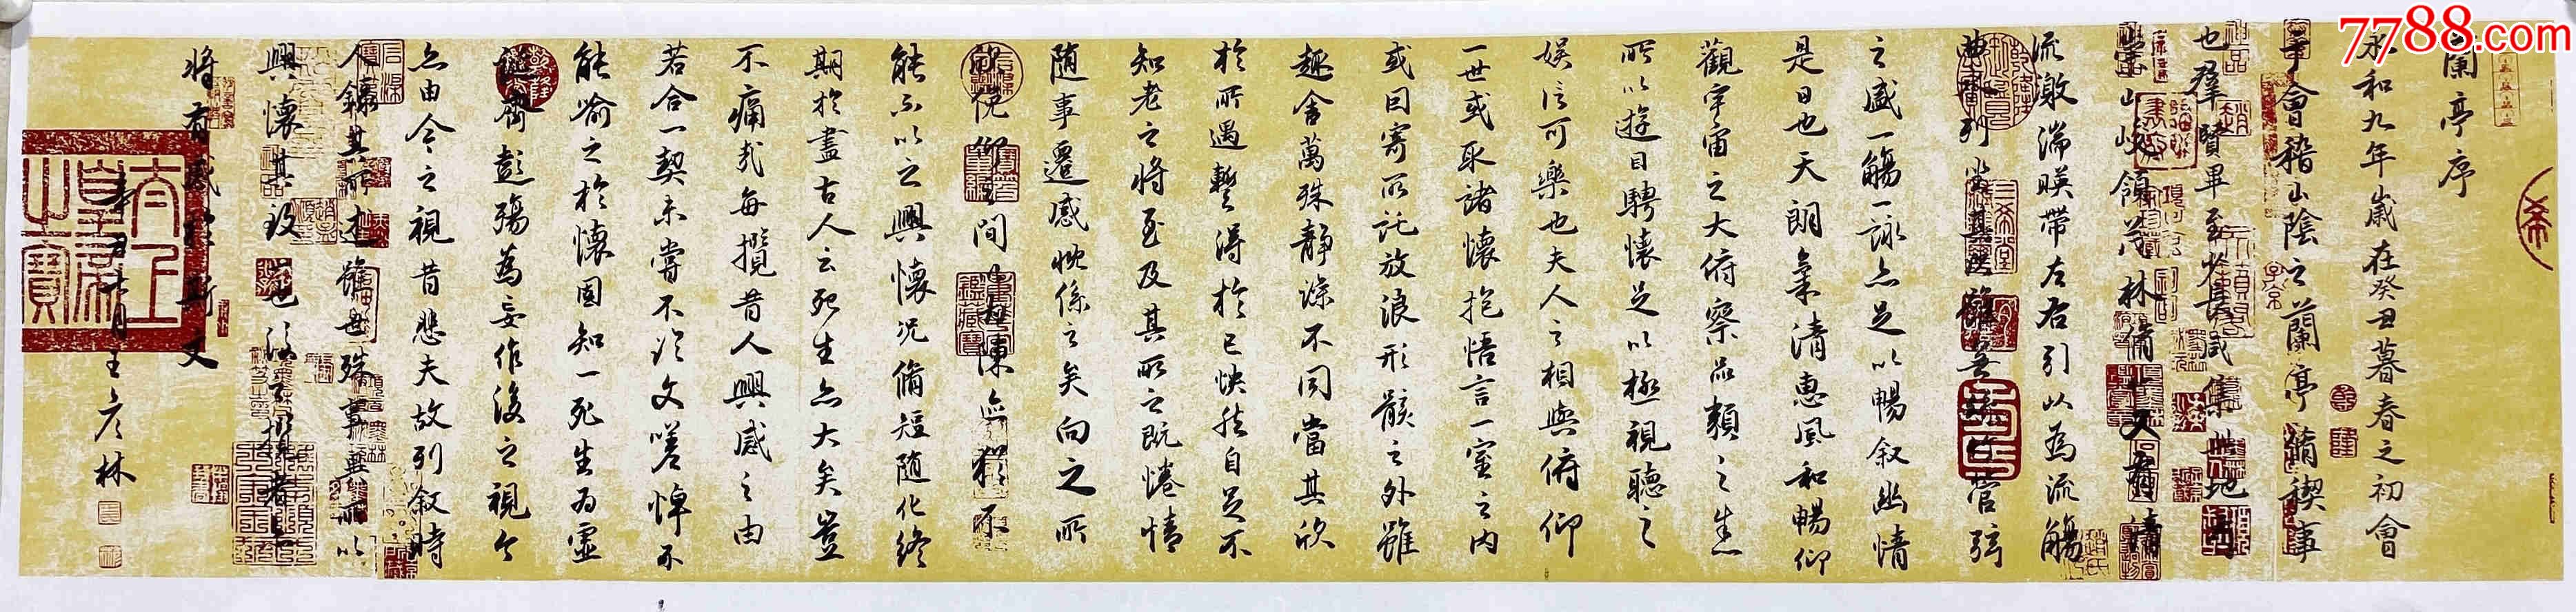 7788.com
蘭亭序
永和九年歲在癸丑暮春之初會
于會稽山陰之蘭亭脩稧事
也羣賢畢至少長咸集此地有
崇山峻領茂林脩竹又有清
流激湍暎帶左右引以為流觴
曲水列坐其次雖無絲竹管弦
之盛一觴一詠亦足以暢叙幽情
是日也天朗氣清惠風和暢仰
觀宇宙之大俯察品類之盛
所以遊目騁懷足以極視聽之
娛信可樂也夫人之相與俯仰
一世或取諸懷抱悟言一室之內
或因寄所託放浪形骸之外雖
趣舍萬殊靜躁不同當其欣
於所遇暫得於己怏然自足不
知老之將至及其所之既惓情
隨事遷感慨係之矣向之所
欣俛仰之間以為陳迹猶不
能不以之興懷況脩短隨化終
期於盡古人云死生亦大矣豈
不痛哉每攬昔人興感之由
若合一契未嘗不臨文嗟悼不
能喻之於懷固知一死生為虛
誕齊彭殤為妄作後之視今
亦由今之視昔悲夫故列叙時
人錄其所述雖世殊事異所以
興懷其致一也後之攬者亦
將有感於斯文
王彦林
太上皇帝之寶